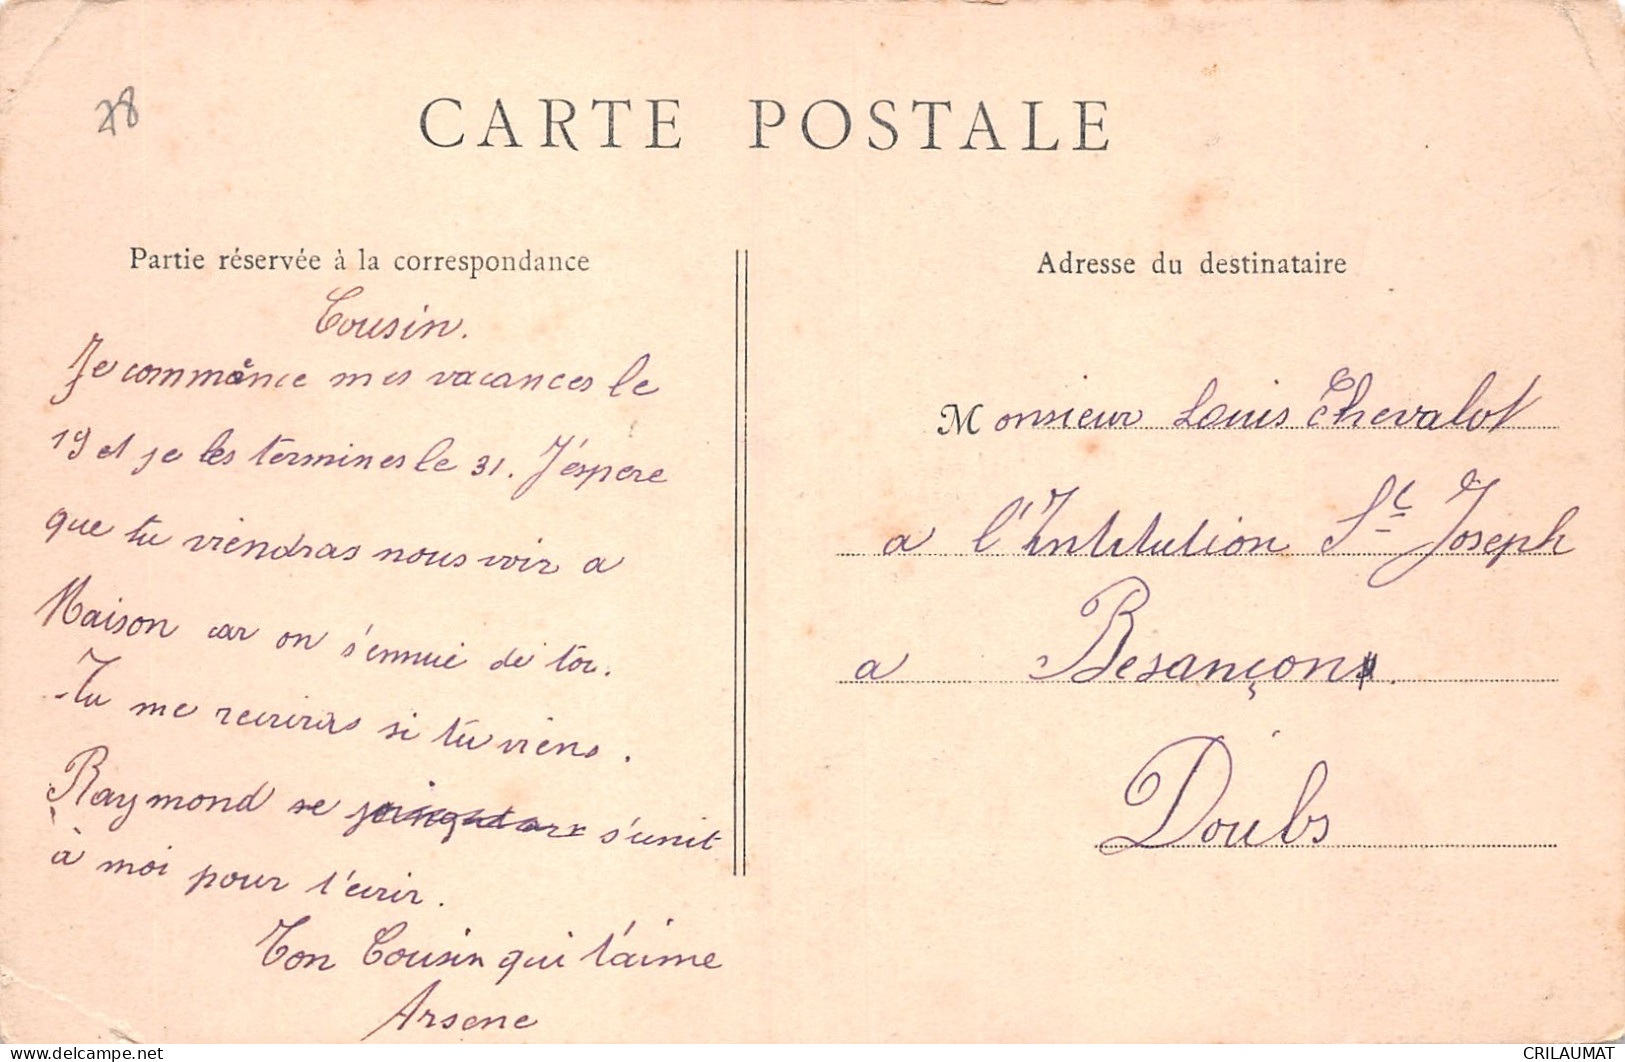 78
CARTE POSTALE
Partie réservée à la correspondance
Cousin.
Je commence mes vacances le
19 et je les termines le 31. J'éspere
que tu viendras nous voir a
Maison car on s'ennuie de toi.
Tu me recriras si tu viens.
Raymond se s'unit
à moi pour t'ecrir.
Ton Cousin qui t'aime
Arsene
Adresse du destinataire
Monsieur Louis Chevalot
a l'Intitution St Joseph
a Besançon.
Doubs
CRILAUMAT